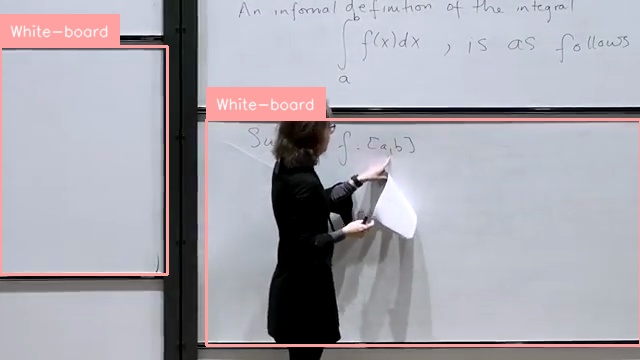 White-board
An informal definition of the integral
∫ₐᵇ f(x)dx , is as follows
White-board
f . [a,b]